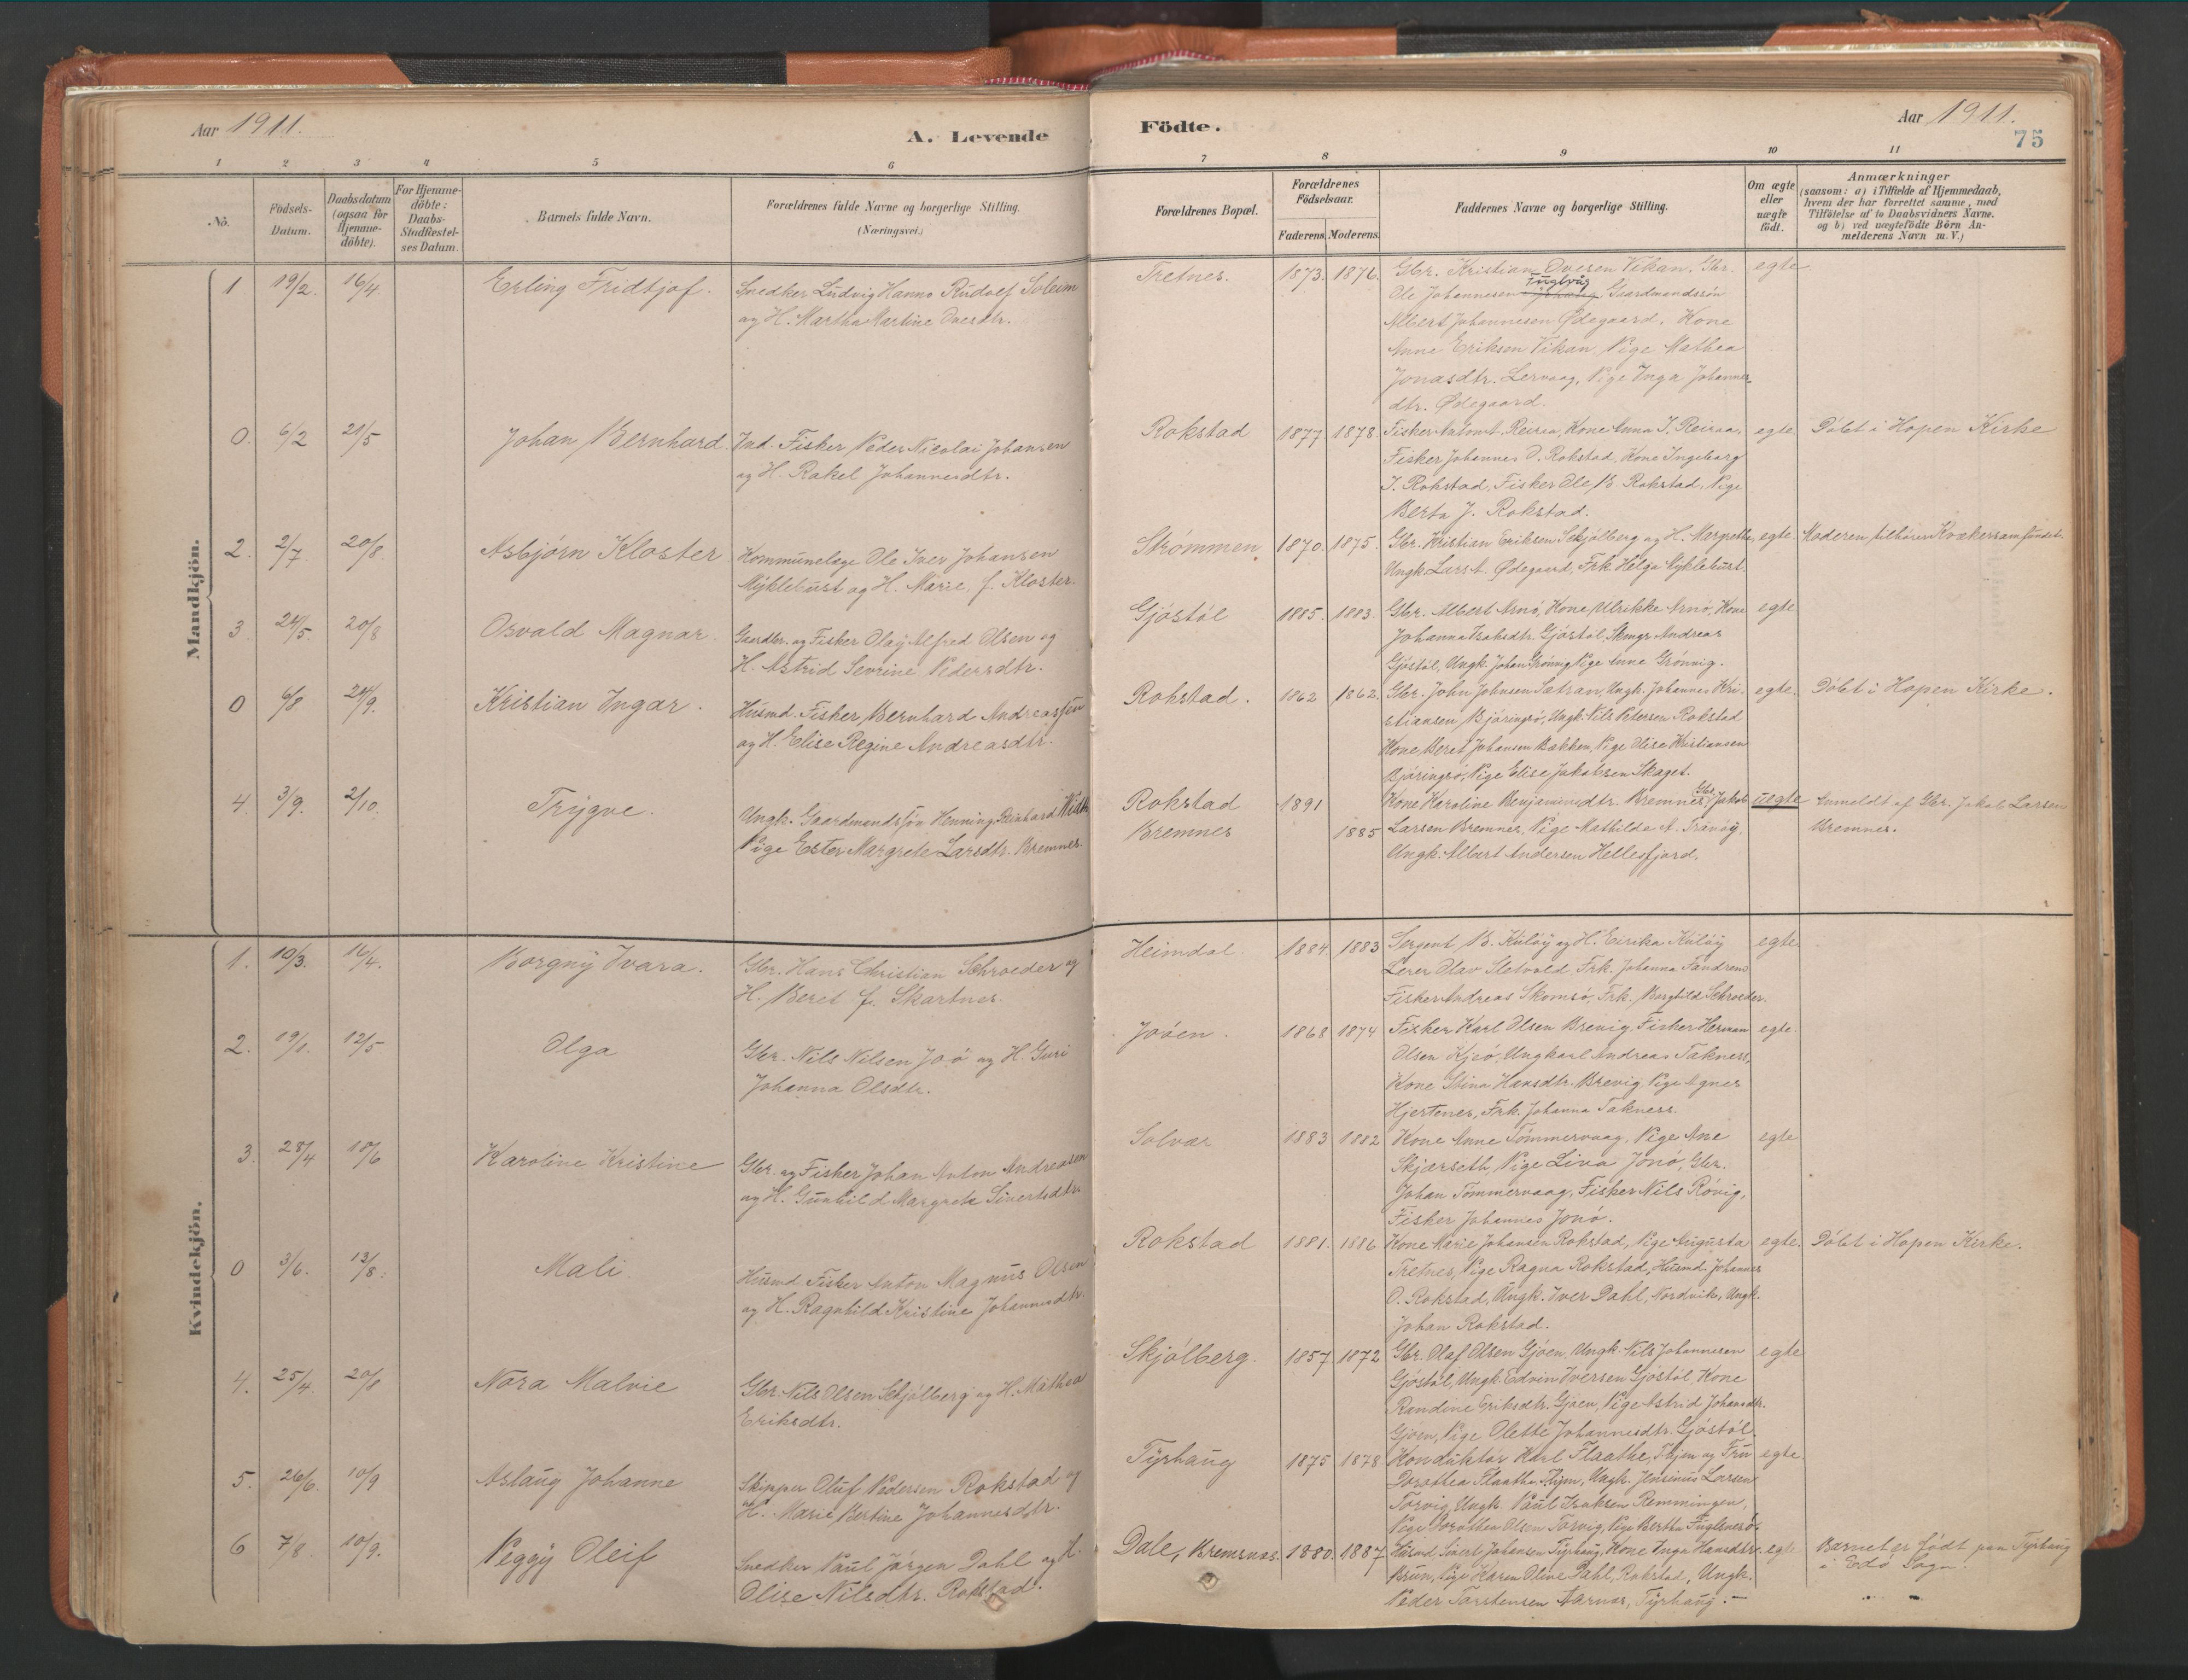 Aar 1911.
A. Levende
Födte.
Aar 1911.
75
1 2 3 4 5 6 7 8 9 10 11
No.
Födsels-
Datum.
Daabsdatum
(ogsaa for
Hjemme-
döbte).
For Hjemme-
döbte:
Daabs-
Stadfæstel-
ses Datum.
Barnets fulde Navn.
Forældrenes fulde Navne og borgerlige Stilling.
(Næringsvei.)
Forældrenes Bopæl.
Forældrenes
Födselsaar.
Faderens. Moderens.
Faddernes Navne og borgerlige Stilling.
Om ægte
eller
uægte
födt.
Anmærkninger
(saasom: a) i Tilfælde af Hjemmedaab,
hvem der har forrettet samme, med
Tilföielse af to Daabsvidners Navne.
og b) ved uægtefödte Börn An-
melderens Navn m. V.)
Mandkjön.
1 19/2. 16/4. Erling Fridtjof.
Snedker Ludvig Hanno Rudolf Soleim
og H. Martha Martine Ovesdtr.
Tretnes. 1873. 1876.
Gbr. Kristian Ovesen Vikan. Gbr.
Fuglvåg
Ole Johannesen Gaardmandssön
Albert Johannesen Ødegaard. Kone
Anne Eriksen Vikan, Pige Mathea
Jonasdtr. Lervaag, Pige Inga Johannes
dtr. Ødegaard.
egte
0. 6/2 21/5 Johan Bernhard.
Ind. Fisker Peder Nicolai Johansen
og H. Rakel Johannesdtr.
Rokstad 1877 1878.
Fisker Anton t. Reiraa, Kone Anna J. Reiraa,
Fisker Johannes O. Rokstad, Kone Ingeborg
J. Rokstad, Fisker Ole B. Rokstad, Pige
Berta J. Rokstad.
egte Döbt i Hopen Kirke
2. 2/7 20/8. Asbjørn Kloster
Kommunelæge Ole Iver Johansen
Myklebust og H. Marie, f. Kloster.
Strömmen 1870. 1875.
Gbr. Kristian Eriksen Skjölberg og H. Margrethe,
Ungk. Lars t. Ødegaard, Frk. Helga Myklebust.
egte. Moderen tilhører Kvækersamfundet.
3. 24/5. 20/8 Osvald Magnar.
Gaardbr. og Fisker Olaf Alfred Olsen og
H. Astrid Sevrine Pedersdtr.
Gjöstöl 1885. 1883.
Gbr. Albert Arnö, Kone Ulrikke Arnö, Kone
Johanna Isaksdtr. Gjöstöl, Andreas
Gjöstöl, Ungk. Johan Grönvig, Pige Anne Grönvig.
egte
0 6/8 24/9. Kristian Ingar.
Husmd. Fisker Bernhard Andreassen
og H. Elise Regine Andreasdtr.
Rokstad. 1862 1862.
Gbr. John Johnsen Satran, Ungk. Johannes Kri-
stiansen Björingsö, Ungk. Nils Petersen Rokstad
Kone Beret Johansen Bækken, Pige Olise Kristiansen
Björingsö, Pige Elise Jakobsen Skaget.
egte. Döbt i Hopen Kirke.
4. 3/9. 2/10. Trygve.
Ungk. Gaardmandssøn Henning Reinhard
Pige Ester Margrete Larsdtr. Bremnes.
Rokstad 1891
Bremnes 1885
Kone Karoline Benjaminsdtr. Bremnes, Gbr. Jakob
Larsen Bremnes, Pige Mathilde A. Tranöy,
Ungk. Albert Andersen Hellesfjord.
uegte Anmeldt af Gbr. Jakob Larsen
Bremnes.
Kvindekjön.
1. 10/3. 16/4. Borgny Ivara.
Gbr. Hans Christian Schroeder og
H. Beret f. Skartnes.
Heimdal. 1884. 1883
Sergent B. Kulöy og H. Eirika Kulöy
Lærer Olav Sletvold, Frk. Johanna Fandrem
Fisker Andreas Skomsö, Frk. Borghild Schroeder.
egte
2. 19/1. 12/5 Olga
Gbr. Nils Nilsen Joö og H. Guri
Johanna Olsdtr.
Joöen. 1868 1874
Fisker Karl Olsen Brevig, Fisker Herman
Olsen Kjeö, Ungkarl Andreas Takness,
Kone Stina Hansdtr. Brevig, Pige Agnes
Hjertenes, Frk. Johanna Takness.
egte.
3. 28/4 18/6 Karoline Kristine
Gbr. og Fisker Johan Anton Andreasen
og H. Gunhild Margrete Sivertsdtr.
Solvær 1883 1882
Kone Anne Tömmervaag, Pige Ane
Skjærseth, Pige Liva Jonö, Gbr.
Johan Tömmervaag, Fisker Nils Rövig,
Fisker Johannes Jonö.
egte
0 3/6. 13/8. Mali
Husmd. Fisker Anton Magnus Olsen
og H. Ragnhild Kristine Johannesdtr.
Rokstad 1881. 1886
Kone Marie Johansen Rokstad, Pige Augusta
Tretnes, Pige Ragna Rokstad, Husmd. Johannes
O. Rokstad, Ungk. Iver Dahl, Nordvik, Ungk.
Johan Rokstad.
egte. Döbt i Hopen Kirke.
4. 25/4. 20/8 Nora Malvie
Gbr. Nils Olsen Skjölberg og H. Mathea
Eriksdtr.
Skjölberg. 1857. 1872
Gbr. Olaf Olsen Gjöen, Ungk. Nils Johannesen
Gjöstöl, Ungk. Edvin Iversen Gjöstöl, Kone
Randine Eriksdtr. Gjöen, Pige Astrid Johansdtr.
Gjöen, Pige Olette Johannesdtr. Gjöstöl.
egte
5. 26/6. 10/9 Aslaug Johanne
Skipper Oluf Pedersen Rokstad og
H. Marie Bertine Johannesdtr.
Tyrhaug 1875 1878
Konduktör Karl Flaathe, Thjem og Fru
Dorothea Flaathe, Thjem, Ungk. Jensinus Larsen
Torvig, Ungk. Paul Isaksen Remmingen,
Pige Dorothea Olsen Torvig, Pige Bertha Fuglesnesö.
egte
6 7/8. 10/9. Peggy Oleif
Snedker Paul Jörgen Dahl og H.
Olise Nilsdtr. Rokstad.
Dale, Bremsnes. 1880. 1887
Husmd. Sivert Johansen Tyrhaug, Kone Inga Hansdtr.
Brun, Pige Karen Oline Dahl, Rokstad, Ungk.
Peder Torstensen Aarnes, Tyrhaug.
egte Barnet er födt paa Tyrhaug
i Edö Sogn.